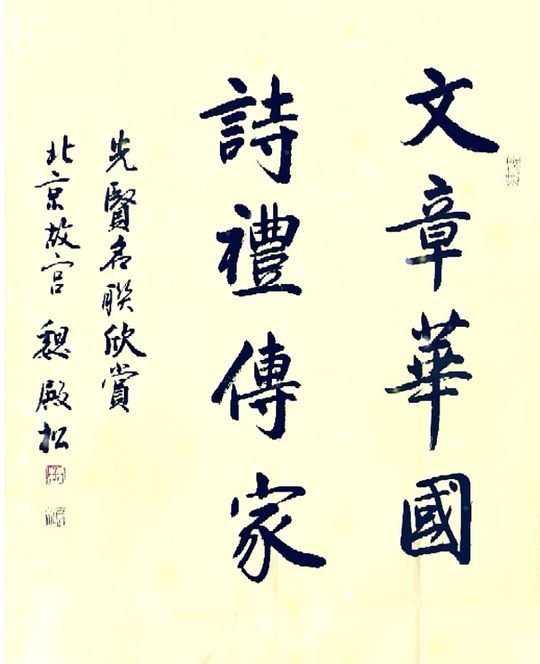 文章華國
詩禮傳家
先賢名聯欣賞
北京故宫 魏殿松